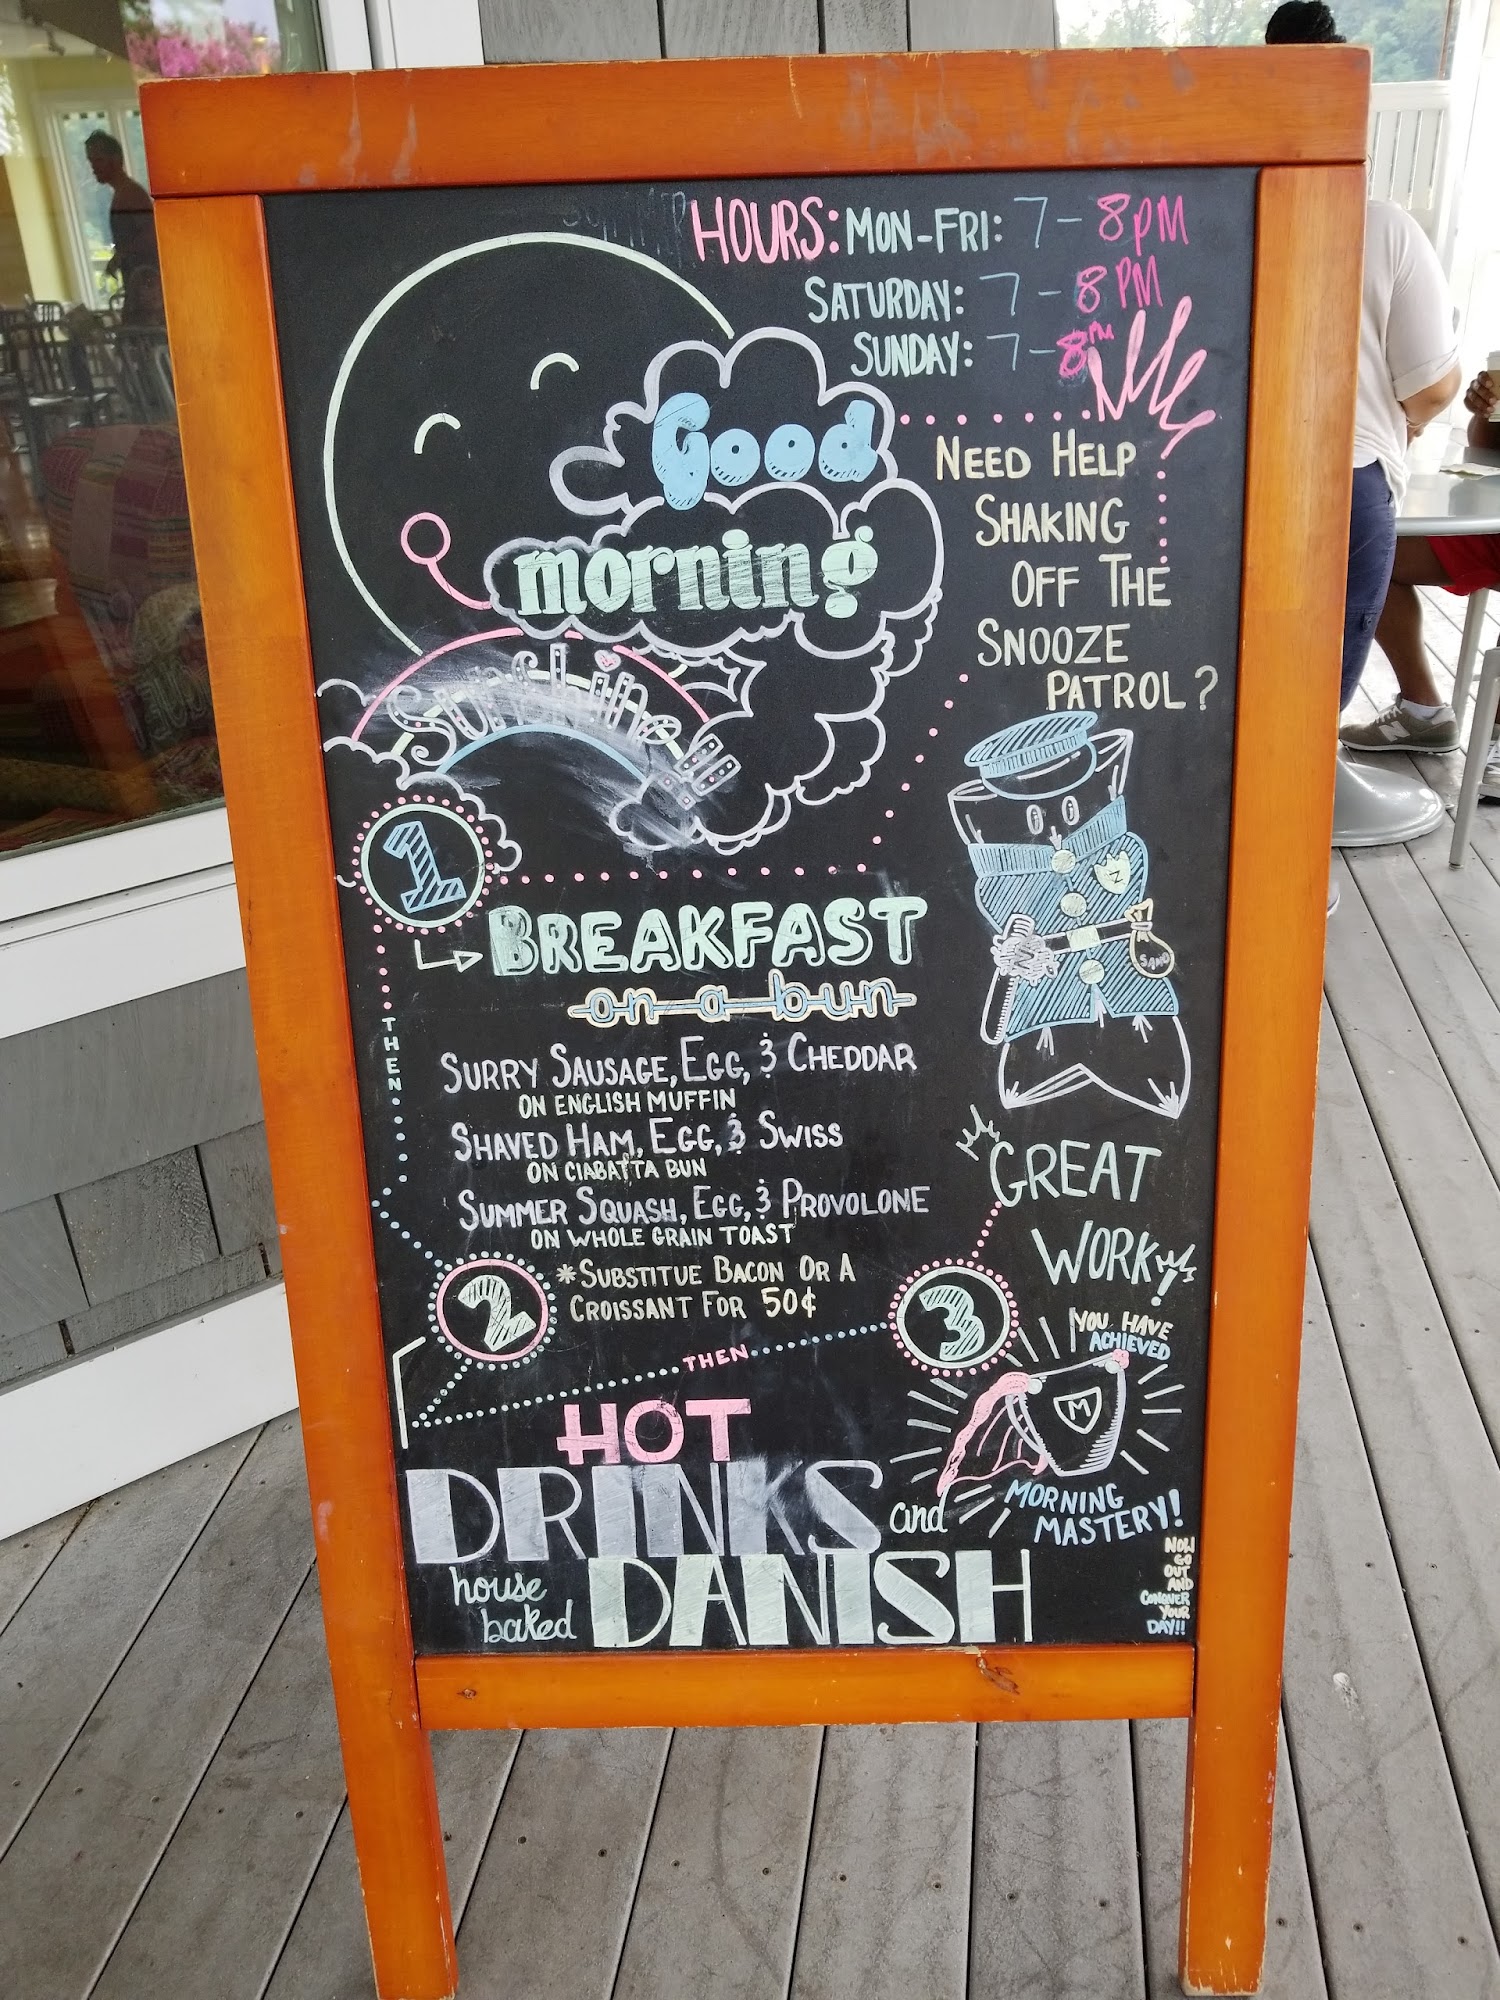 HOURS: MON-FRI: 7-8PM
SATURDAY: 7-8PM
SUNDAY: 7-8PM
Good
morning
Sunshine!!
NEED HELP
SHAKING
OFF THE
SNOOZE
PATROL?
Z
SAND
Z
1
BREAKFAST
on a bun
THEN
SURRY SAUSAGE, EGG, & CHEDDAR
ON ENGLISH MUFFIN
SHAVED HAM, EGG, & SWISS
ON CIABATTA BUN
SUMMER SQUASH, EGG, & PROVOLONE
ON WHOLE GRAIN TOAST
*SUBSTITUE BACON OR A
CROISSANT FOR 50¢
2
THEN
HOT
DRINKS and
house
baked DANISH
3
GREAT
WORK!
YOU HAVE
ACHIEVED
M
MORNING
MASTERY!
NOW
GO
OUT
AND
CONQUER
YOUR
DAY!!